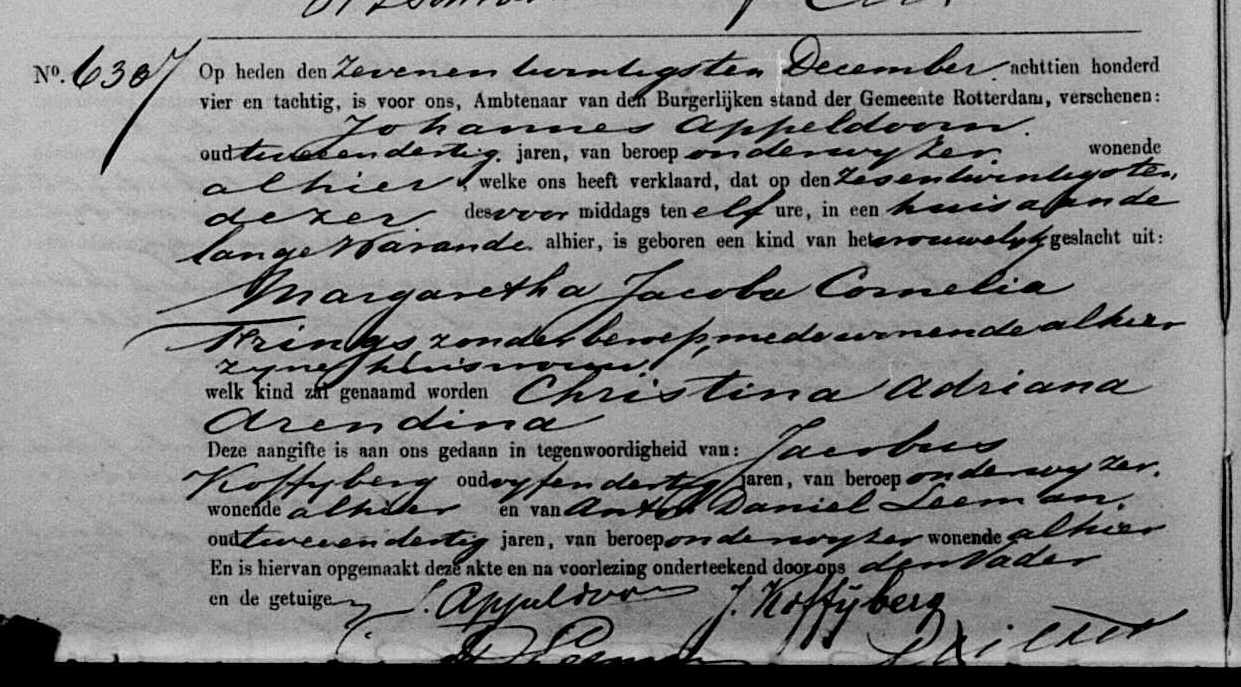 Nº. 6307 Op heden den Zevenentwintigsten December achttien honderd
vier en tachtig, is voor ons, Ambtenaar van den Burgerlijken stand der Gemeente Rotterdam, verschenen:
Johannes Appeldoorn.
oud tweeendertig jaren, van beroep onderwyzer wonende
alhier, welke ons heeft verklaard, dat op den Zesentwintigsten
dezer des voor middags ten elf ure, in een huis aan de
lange Warande alhier, is geboren een kind van het vrouwelyk geslacht uit:
Margaretha Jacoba Cornelia
Krings zonder beroep, mede wonende alhier
zyne huisvrouw,
welk kind zal genaamd worden Christina Adriana
Arendina
Deze aangifte is aan ons gedaan in tegenwoordigheid van: Jacobus
Koffyberg oud vyfendertig jaren, van beroep onderwyzer.
wonende alhier en van Anton Daniel Leeman
oud tweeendertig jaren, van beroep onderwyzer wonende alhier
En is hiervan opgemaakt deze akte en na voorlezing onderteekend door ons den Vader
en de getuigen
J. Appeldoorn J. Koffijberg
Leeman